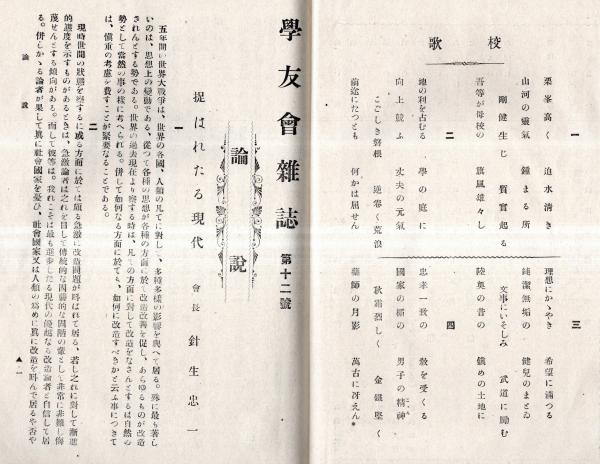 校歌
一
栗峯高く 迫水清き
山河の靈氣 鐘まる所
剛健生じ 質實起る
吾等が母校の 旗風雄々し
二
地の利を占むる 學の庭に
向上競ふ 丈夫の元氣
こごしき磐根 逆卷く荒浪
前途にたつとも 何かは屈せん
三
理想にかゞやき 希望に滿つる
純潔無垢の 健兒のまとゐ
文事にいそしみ 武道に勵む
陸奥の昔の 鎭めの土地に
四
忠孝一致の 教を受くる
國家の楯の 男子の精神
秋霜烈しく 金鐵堅く
藥師の月影 萬古に冴えん
學友會雜誌 第十二號
論說
捉はれたる現代
會長 針生忠一
一
五年間の世界大戰爭は、世界の各國、人類の凡てに對し、多種多樣の影響を與へて居る。殊に最も著し
いのは、思想上の變動である、從つて各種の思想が各種の方面に於て改造改善を促し、あらゆるものが改造
されんとする勢である。世界の過去現在より察する時は、凡ての方面に對して改造をなさんとするは自然の
勢として當然の事の樣に考へられる。併して如何なる方面に於ても、如何に改造すべきかと云ふ事につきて
は、愼重の考慮を費すことが緊要なることである。
二
現時世間の狀態を察するに或る方面に於ては頗る急激に改造問題が呼ばれて居る、若し之れに對して漸進
的進度を示すものがあるときは、急激論者は之れを目して傳統的な因襲的な固陋の輩として非常に非難し侮
蔑せんとする傾向がある。而して彼等は。我れこそは最も進步したる現代の優越なる改造論者と自信して居
る。併しかゝる論者が果して眞に社會國家を憂ひ、社會國家又は人類の爲めに眞に改造を叫んで居るや否や
論說
一